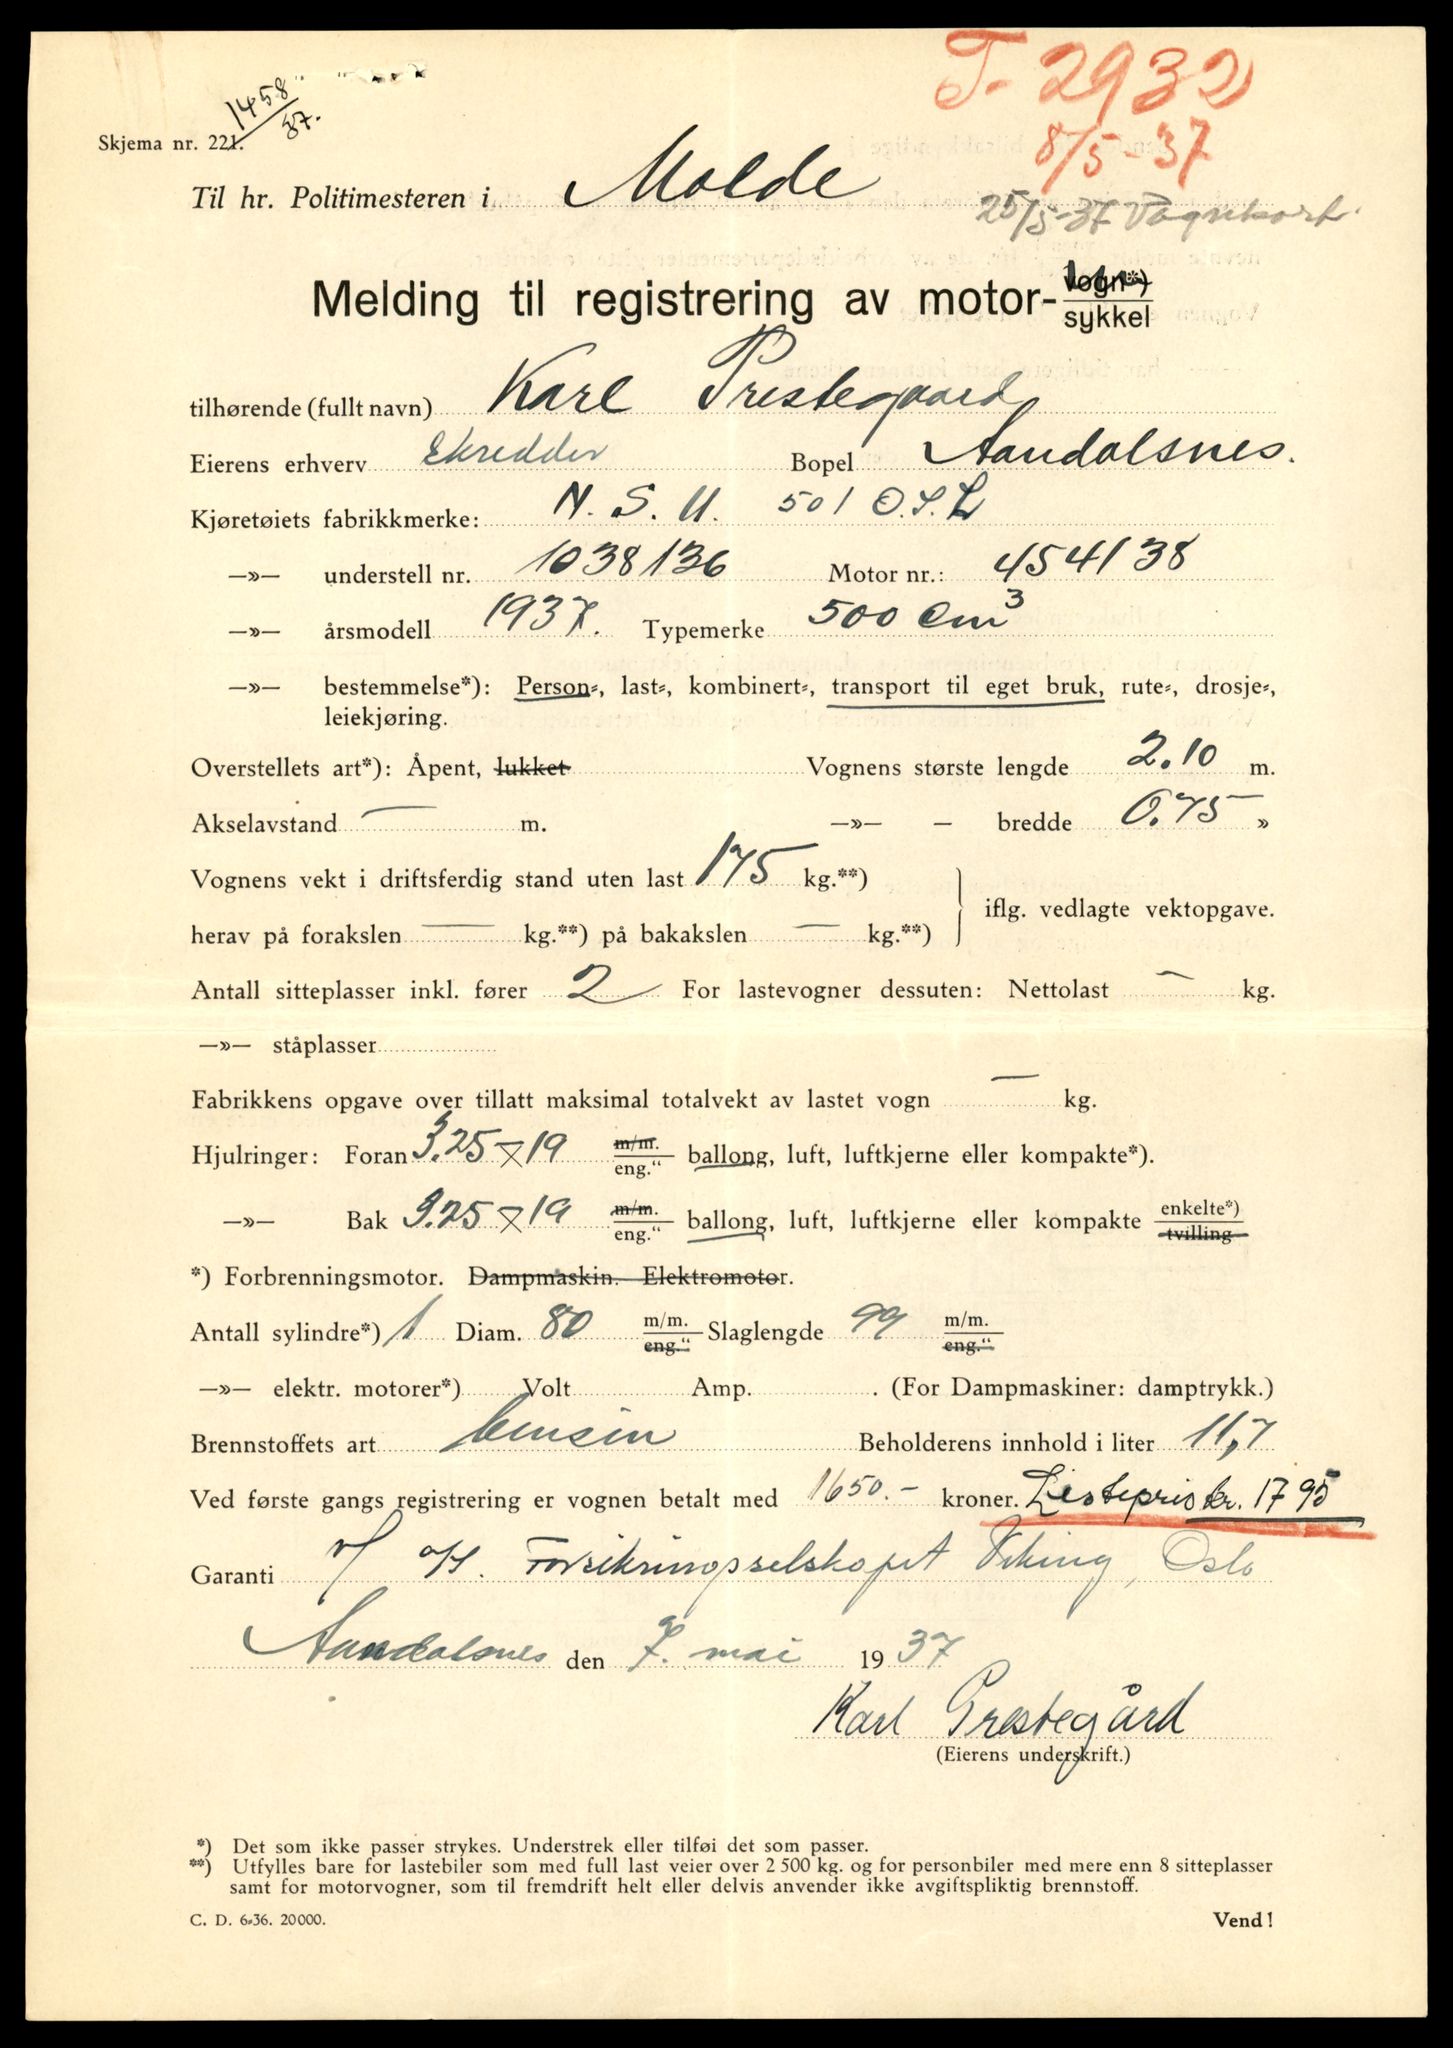 T-2932
8/5-37
1458/37.
Skjema nr. 221.
Til hr. Politimesteren i Molde
25/5-37 Vognkort.
Melding til registrering av motor- vogn*) sykkel
tilhørende (fullt navn) Karl Prestegaard
Eierens erhverv Skredder Bopel Aandalsnes.
Kjøretøiets fabrikkmerke: N. S. U. 501 O.S.L
—»— understell nr. 1038136 Motor nr.: 454138
—»— årsmodell 1937. Typemerke 500 cm³
—»— bestemmelse*): Person-, last-, kombinert-, transport til eget bruk, rute-, drosje-,
leiekjøring.
Overstellets art*): Åpent, lukket Vognens største lengde 2.10 m.
Akselavstand — m. —»— — bredde 0.75 »
Vognens vekt i driftsferdig stand uten last 175 kg.**)
herav på forakslen — kg.**) på bakakslen — kg.**) iflg. vedlagte vektopgave.
Antall sitteplasser inkl. fører 2 For lastevogner dessuten: Nettolast — kg.
—»— ståplasser
Fabrikkens opgave over tillatt maksimal totalvekt av lastet vogn — kg.
Hjulringer: Foran 3.25 x 19 m/m. eng." ballong, luft, luftkjerne eller kompakte*).
—»— Bak 3.25 x 19 m/m. eng." ballong, luft, luftkjerne eller kompakte enkelte*) tvilling
*) Forbrenningsmotor. Dampmaskin. Elektromotor.
Antall sylindre*) 1 Diam. 80 m/m. eng." Slaglengde 99 m/m. eng."
—»— elektr. motorer*) Volt Amp. . (For Dampmaskiner: damptrykk.)
Brennstoffets art bensin Beholderens innhold i liter 11,7
Ved første gangs registrering er vognen betalt med 1650.- kroner. Listepris kr. 1795
Garanti A/S. Forsikringsselskapet Viking, Oslo
Aandalsnes den 7. mai 1937
Karl Prestegård
(Eierens underskrift.)
*) Det som ikke passer strykes. Understrek eller tilføi det som passer.
**) Utfylles bare for lastebiler som med full last veier over 2 500 kg. og for personbiler med mere enn 8 sitteplasser
samt for motorvogner, som til fremdrift helt eller delvis anvender ikke avgiftspliktig brennstoff.
C. D. 6-36. 20000. Vend!